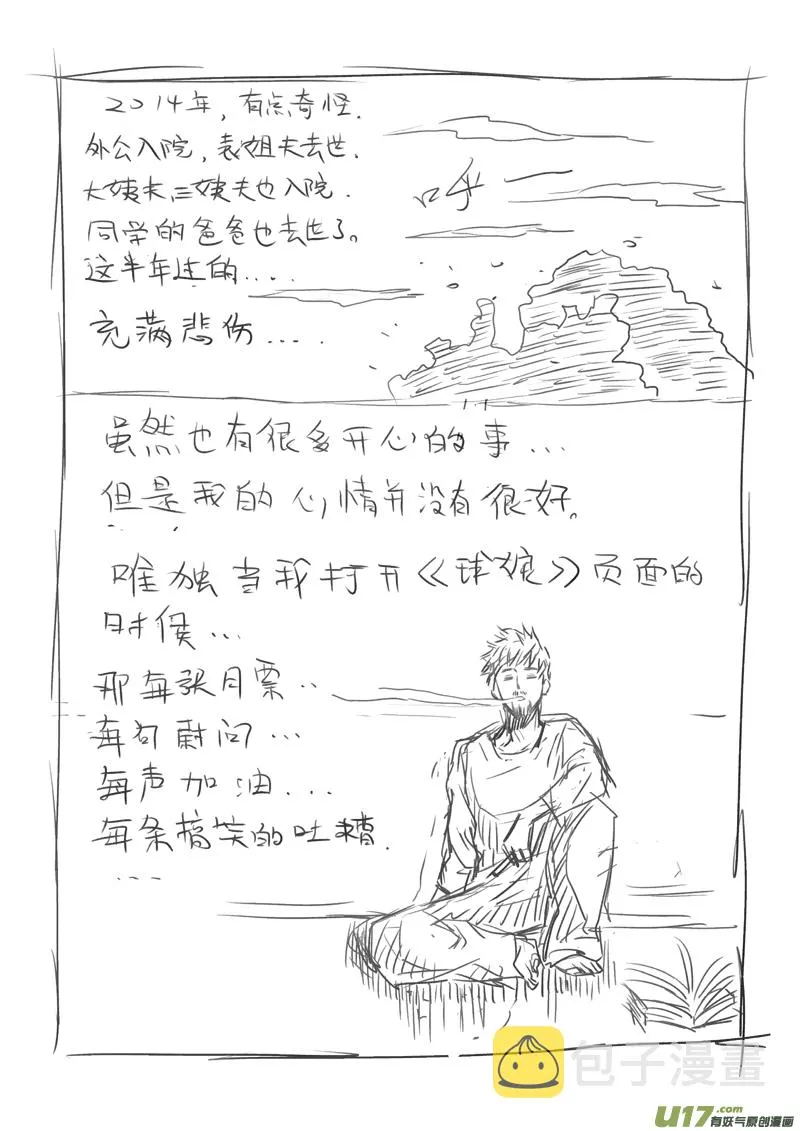 2014年，有点奇怪.
外公入院，表姐夫去世.
大姨夫.三姨夫也入院.
同学的爸爸也去世了。
这半年过的....
充满悲伤....
呼一
虽然也有很多开心的事...
但是我的心情并没有很好。
唯独当我打开《球娘》页面的
时候...
那每张月票...
每句慰问...
每声加油...
每条搞笑的吐槽.
....
包子漫畫
U17.com
有妖气原创漫画